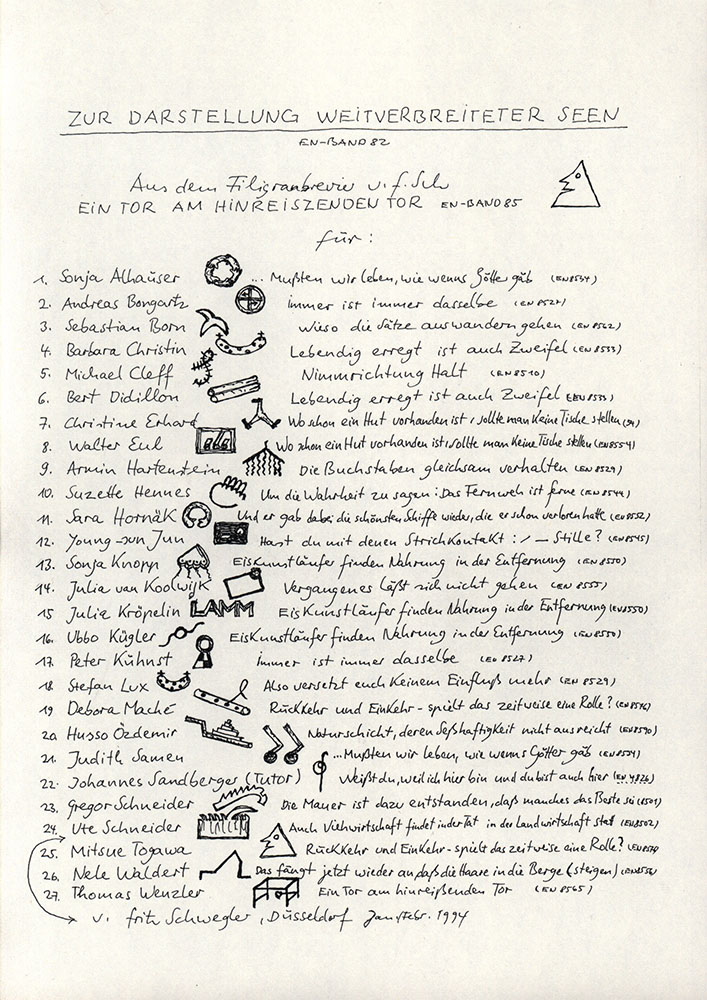 ZUR DARSTELLUNG WEITVERBREITETER SEEN
EN-BAND 82
Aus dem Filigranbrevier v. f. Sch
EIN TOR AM HINREISZENDEN TOR EN-BAND 85
für:
1. Sonja Alhäuser ... Mußten wir leben, wie wenns Götter gäb (EN 8534)
2. Andreas Bongartz immer ist immer dasselbe (EN 8527)
3. Sebastian Born wieso die Sätze auswandern gehen (EN 8562)
4. Barbara Christin Lebendig erregt ist auch Zweifel (EN 8533)
5. Michael Cleff Nimmrichtung Halt (EN 8510)
6. Bert Didillon Lebendig erregt ist auch Zweifel (EN 8533)
7. Christine Erhard Wo schon ein Hut vorhanden ist, sollte man Keine Tische stellen
8. Walter Eul Wo schon ein Hut vorhanden ist, sollte man Keine Tische stellen (EN 8554)
9. Armin Hartenstein Die Buchstaben gleichsam verhalten (EN 8529)
10. Suzette Hennes Um die Wahrheit zu sagen: Das Fernweh ist ferne (EN 8544)
11. Sara Hornäk Und er gab dabei die schönsten Schiffe wieder, die er schon verloren hatte (EN 8552)
12. Young-Jun Hast du mit denen StrichKontaKt : / — Stille? (EN 8545)
13. Sonja Knopp EisKunstläufer finden Nahrung in der Entfernung (EN 8550)
14. Julia van Koolwijk Vergangenes läßt sich nicht gehen (EN 8555)
15 Julia Kröpelin LAMM EisKunstläufer finden Nahrung in der Entfernung (EN 8550)
16. Ubbo Kügler EisKunstläufer finden Nahrung in der Entfernung (EN 8550)
17. Peter Kühnst immer ist immer dasselbe (EN 8527)
18 Stefan Lux Also versetzt euch Keinem Einfluß mehr (EN 8529)
19 Debora Maché RücKKehr und EinKehr - spielt das zeitweise eine Rolle?
20 Husso Özdemir Naturschicht, deren SeßhaftigKeit nicht ausreicht
21. Judith Samen ...Mußten wir leben, wie wenns Götter gäb (EN 8534)
22. Johannes Sandberger (Tutor) Weißt du, weil ich hier bin und du bist auch hier
23. Gregor Schneider Die Mauer ist dazu entstanden, daß manches das Beste sei (8501)
24. Ute Schneider Auch Viehwirtschaft findet in der Tat in der Landwirtschaft statt (EN 8502)
25. Mitsue Togawa RücKKehr und EinKehr - spielt das zeitweise eine Rolle?
26. Nele Waldert Das fängt jetzt wieder an, daß die Haare in die Berge (steigen)
27. Thomas Wenzler Ein Tor am hinreißenden Tor (EN 8565)
v. fritz Schwegler, Düsseldorf Jan./Febr. 1994